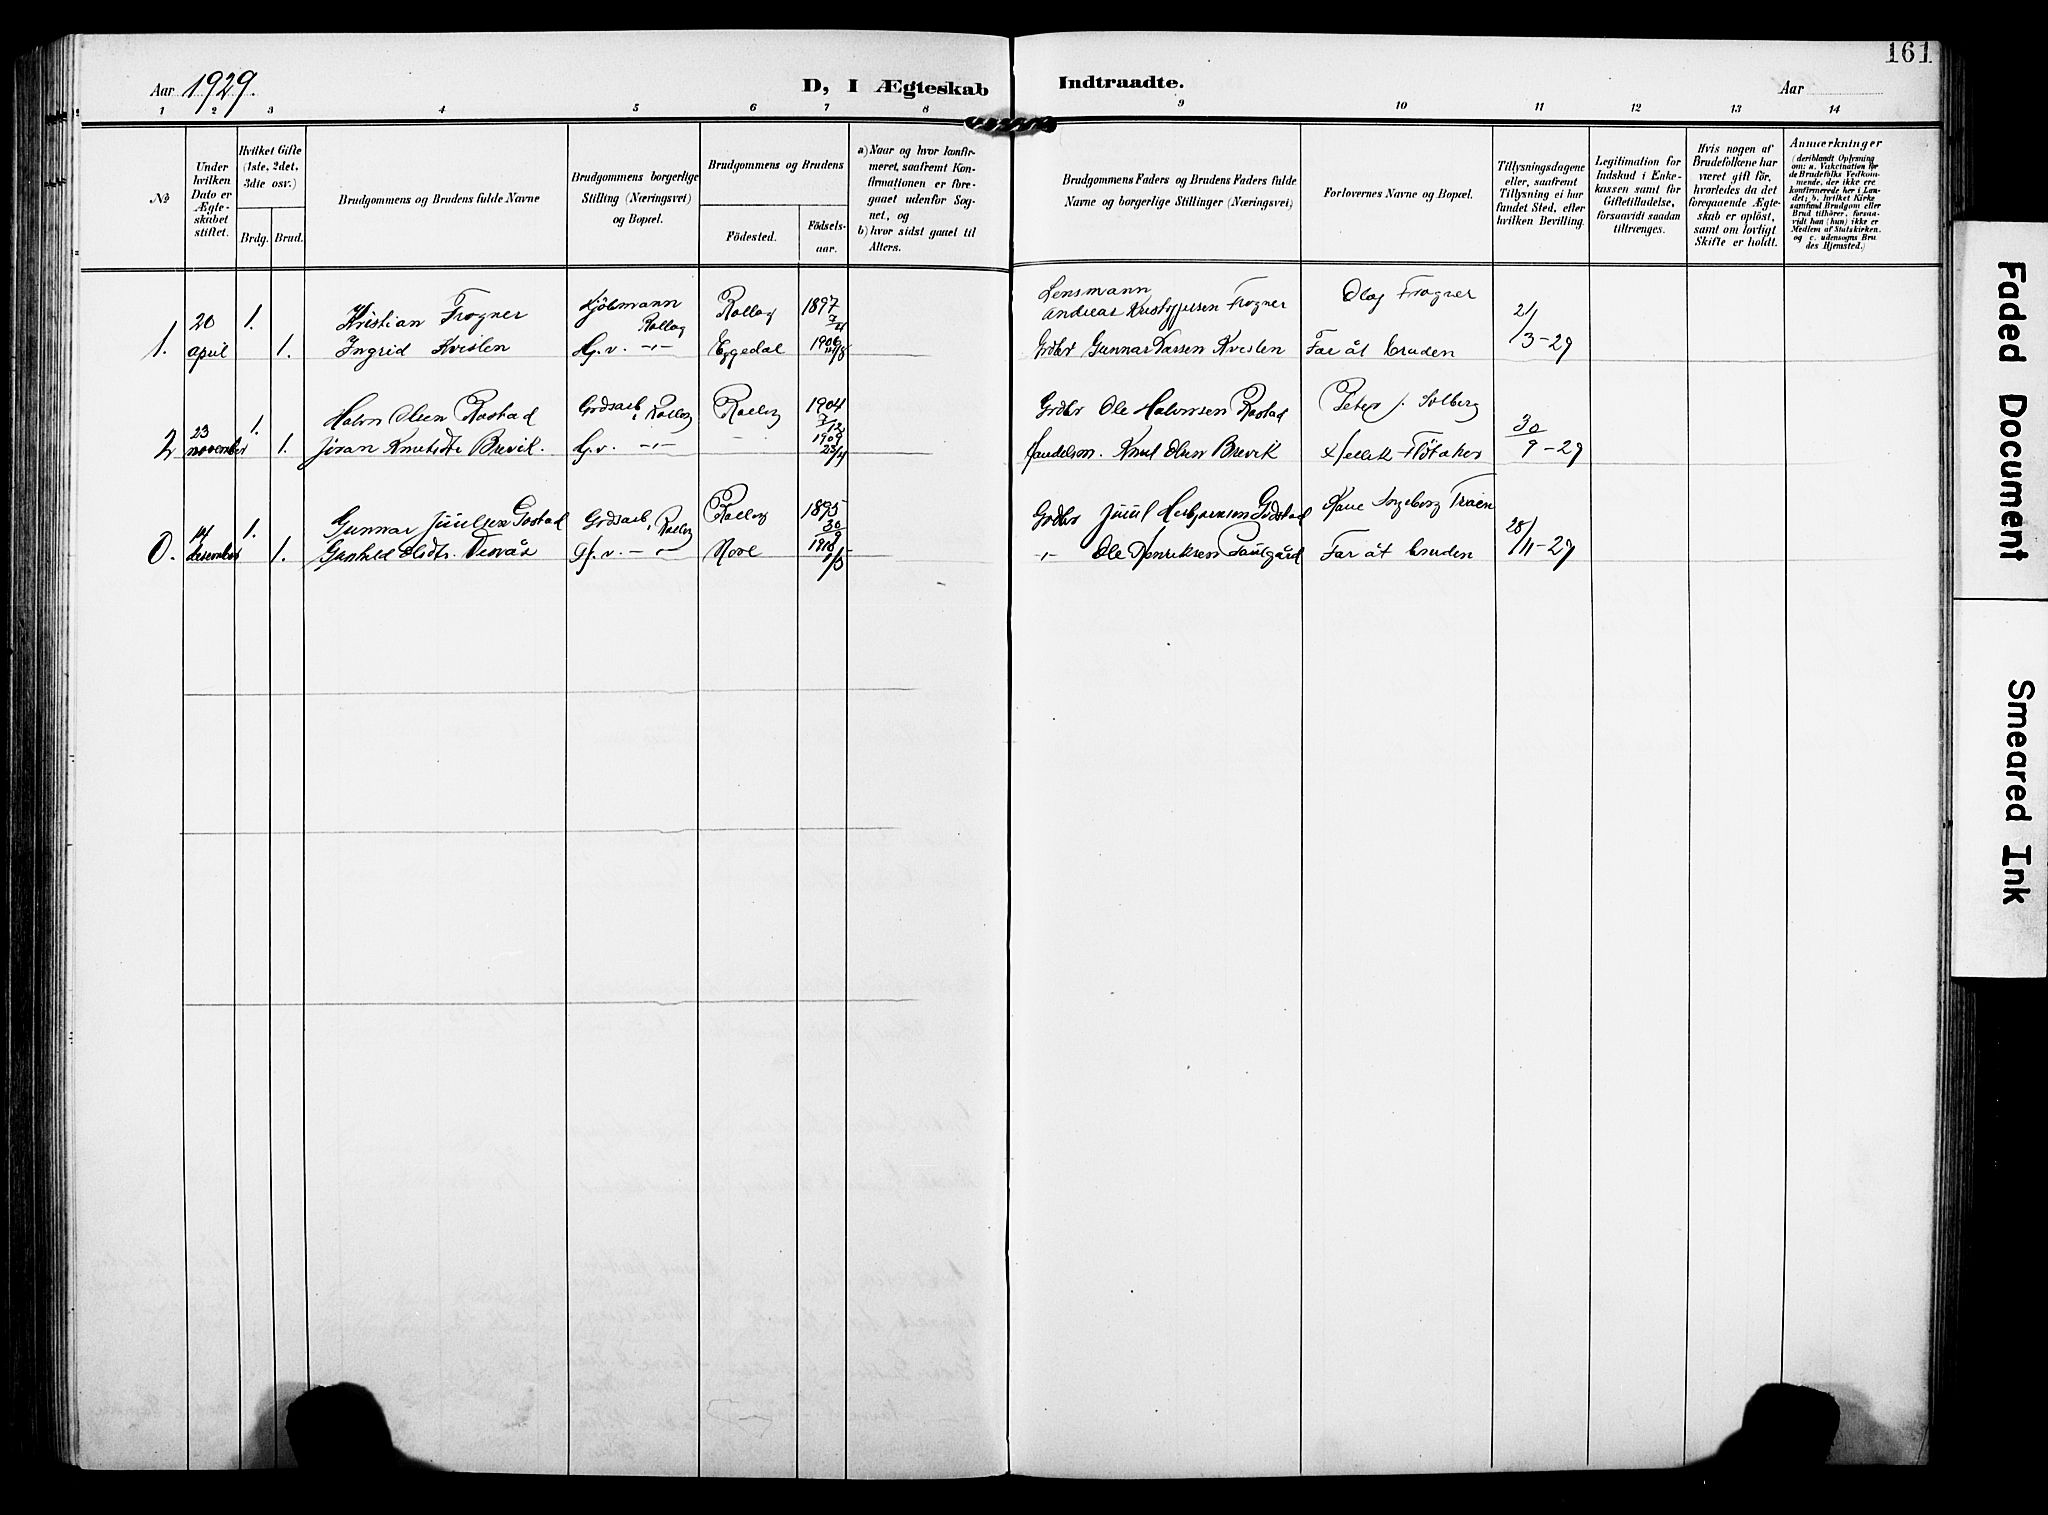 161
Aar 1929.
D, I Ægteskab Indtraadte.
Aar
1 2 3 4 5 6 7 8 9 10 11 12 13 14
No
Under hvilken Dato er Ægteskabet stiftet.
Hvilket Gifte (1ste, 2det, 3die osv.)
Brdg. Brud.
Brudgommens og Brudens fulde Navne
Brudgommens borgerlige Stilling (Næringsvei) og Bopæl.
Brudgommens og Brudens
Födested.
Födselsaar.
a) Naar og hvor konfirmeret, saafremt Konfirmationen er foregaaet udenfor Sognet, og
b) hvor sidst gaaet til Alters.
Brudgommens Faders og Brudens Faders fulde Navne og borgerlige Stillinger (Næringsvei)
Forlovernes Navne og Bopæl.
Tillysningsdagene eller, saafremt Tillysning ei har fundet Sted, efter hvilken Bevilling.
Legitimation for Indskud i Enkekassen samt for Giftetilladelse, forsaavidt saadan tiltrænges.
Hvis nogen af Brudefolkene har været gift før, hvorledes da det foregaaende Ægteskab er opløst, samt om lovligt Skifte er holdt.
Anmærkninger (deriblandt Oplysning om: a. Vakcination for de Brudefolks Vedkommende, der ikke ere konfirmerede her i Landet; b. hvilket Kirkesamfund Brudgom eller Brud tilhörer, forsaavidt han (hun) ikke er Medlem af Statskirken, og c. udensogns Brudes Hjemsted.)
20 1. Kristian Frogner Kjöbmann Rollag Rollag 1897 7/4 Lensmann Andreas Kristoffersen Frogner Olaf Frogner 21/3-29
1. april 1. Ingrid Kvislen Hj.v. -"- Eggedal 1906 Grdbr Gunnar Larsen Kvislen Far åt bruden
23 1. Halvor Olsen Rostad Grdsarb. Rollag Rollag 1904 7/12 Grdbr Ole Halvorsen Rostad Peter J. Solberg 30/9-29
2 november 1. Jöran Knutsdtr Brevik. Hj.v. -"- - 1909 23/4 Handelsm. Knut Olsen Brevik Hellik Flötaker
14 1. Gunnar Juulsen Gostad Grdsarb. Rollag Rollag 1895 30/9 Grdbr Juul Herbjørnsen Ingeborg Traaen 28/11-29
desember 1. Gunhild Hj.v. -"- Nore 1910 -"- Ole Henriksen Far åt bruden
Faded Document
Smeared Ink